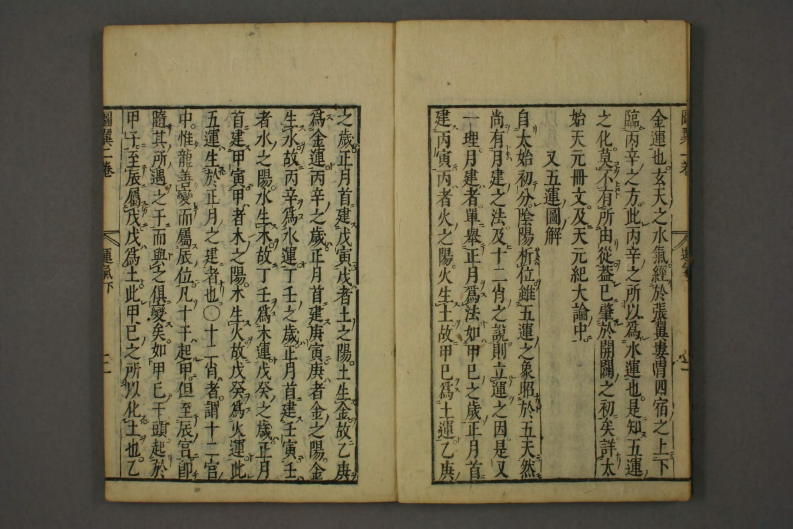 金運也玄天之水氣經於張翼婁胃四宿之上下
臨丙辛之方此丙辛之所以爲水運也是知五運
之化莫不有所由從蓋已肇於開闢之初矣詳太
始天元冊文及天元紀大論中
又五運圖解
自太始初分陰陽析位雖五運之象昭於五天然
尚有月建之法及十二肖之說則立運之因是又
一理月建者單舉正月爲法如甲巳之歲正月首
建丙寅丙者火之陽火生土故甲巳爲土運乙庚
之歲正月首建戊寅戊者土之陽土生金故乙庚
爲金運丙辛之歲正月首建庚寅庚者金之陽金
生水故丙辛爲水運丁壬之歲正月首建壬寅壬
者水之陽水生木故丁壬爲木運戊癸之歲正月
首建甲寅甲者木之陽木生火故戊癸爲火運此
五運生於正月之建者也〇十二肖者謂十二宮
中惟龍善變而屬辰位凡十干起甲但至辰宮即
隨其所遇之干而與之俱變矣如甲巳干頭起於
甲子至辰屬戊戊爲土此甲巳之所以化土也乙
圖翼二卷
運氣下